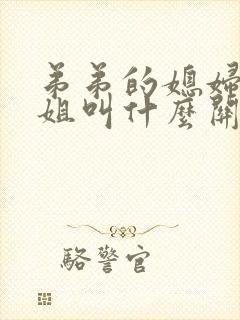 弟弟的媳婦
姐叫什麼關
駱警官